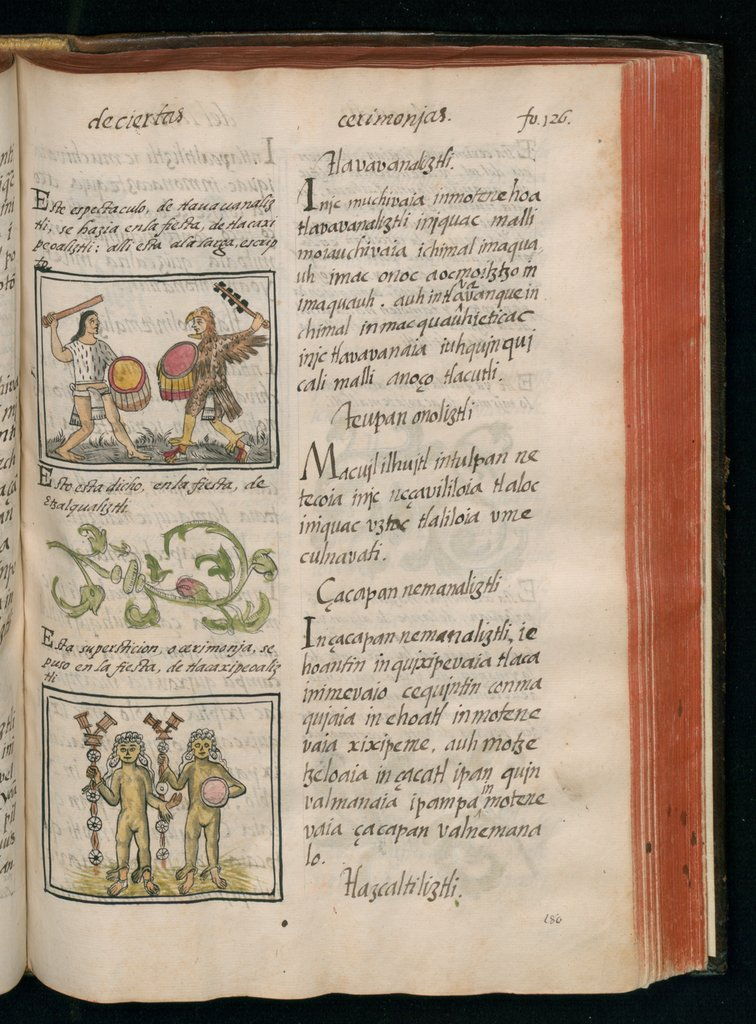 de ciertas cerimonjas. fo. 126.
Este espectaculo, de tlauauanaliz
tli, se hazia en la fiesta, de tlacaxi
peoaliztli: alli esta a la larga, escrip
to.
Esto esta dicho, en la fiesta, de
etzalqualiztli
Esta supersticion, o cerimonja, se
puso en la fiesta, de tlacaxipeoaliz
tli
Tlavavanaliztli.
Injc muchivaia inmotenehoa
tlavavanaliztli iniquac malli
moiauchivaia ichimal imaqua
uh imac onoc aocmo itztzo in
imaquauh. auh in tlavavanque in
chimal in macquauhieticac
injc tlavavanaia iuhqujnqui
cali malli anoço tlacutli.
Teupan onoliztli
Macujl ilhujtl intulpan ne
tecoia injc neçavililoia tlaloc
iniquac vztoc tlaliloia vme
culnavati.
Çacapan nemanaliztli
In çacapan nemanaliztli, ie
hoantin inquixipevaia tlaca
inimevaio cequintin conma
qujaia in ehoatl inmotene
vaia xixipeme, auh motze
tzeloaia in çacatl ipan quin
valmanaia ipampa in motene
vaia çacapan valnemana
lo.
Tlazcaltiliztli.
180